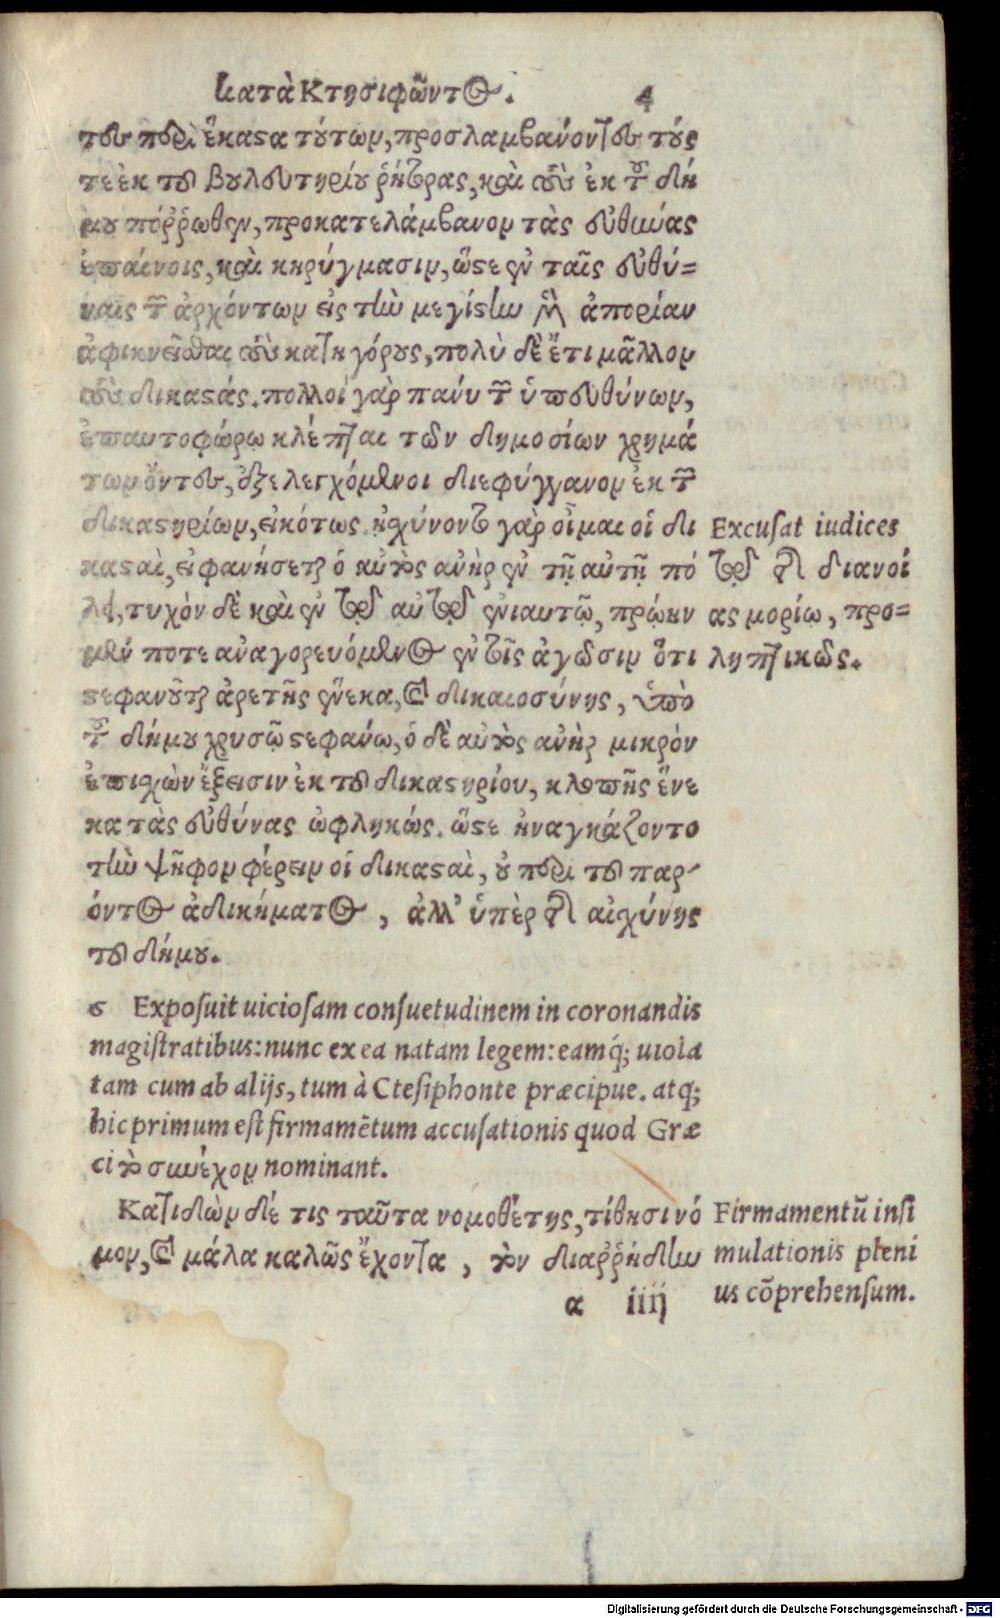 κατὰ Κτησιφῶντος. 4
τες περὶ ἕκαστα τούτων, προσλαμβάνοντες τούς
τε ἐκ τοῦ βουλευτηρίου ῥήτορας, καὶ τοὺς ἐκ τοῦ δή
μου πόῤῥωθεν, προκατελάμβανον τὰς εὐθύνας
ἐπαίνοις, καὶ κηρύγμασιν, ὥστε ἐν ταῖς εὐθύ-
ναις τῶν ἀρχόντων εἰς τὴν μεγίστην μὲν ἀπορίαν
ἀφικνεῖσθαι τοὺς κατηγόρους, πολὺ δὲ ἔτι μᾶλλον
τοὺς δικαστάς. πολλοὶ γὰρ πάνυ τῶν ὑπευθύνων,
ἐπαυτοφώρῳ κλέπται τῶν δημοσίων χρημά
των ὄντες, ἐξελεγχόμενοι διεφύγγανον ἐκ τῶν
δικαστηρίων, εἰκότως. ᾐσχύνοντο γὰρ οἶμαι οἱ δι
καστаὶ, εἰ φανήσεται ὁ αὐτὸς ἀνὴρ ἐν τῇ αὐτῇ πό
λει, τυχὸν δὲ καὶ ἐν τῷ αὐτῷ ἐνιαυτῷ, πρώην
μέν ποτε ἀναγορευόμενος ἐν τοῖς ἀγῶσιν ὅτι
στεφανοῦται ἀρετῆς ἕνεκα, καὶ δικαιοσύνης, ὑπὸ
τοῦ δήμου χρυσῷ στεφάνῳ, ὁ δὲ αὐτὸς ἀνὴρ μικρὸν
ἐπισχὼν ἔξεισιν ἐκ τοῦ δικαστηρίου, κλοπῆς ἕνε
κα τὰς εὐθύνας ὠφληκώς. ὥστε ἠναγκάζοντο
τὴν ψῆφον φέρειν οἱ δικασταὶ, οὐ περὶ τοῦ παρ-
όντος ἀδικήματος, ἀλλ' ὑπὲρ τῆς αἰσχύνης
τοῦ δήμου.
Excusat iudices
τῷ τῆς διανοί
ας μορίῳ, προ-
ληπτικῶς.
ϛ Exposuit uiciosam consuetudinem in coronandis
magistratibus: nunc ex ea natam legem: eamq́; uiola
tam cum ab alijs, tum à Ctesiphonte præcipue. atq;
hic primum est firmamẽtum accusationis quod Græ
ci τὸ συνέχον nominant.
Κατιδὼν δέ τις ταῦτα νομοθέτης, τίθησι νό
μον, καὶ μάλα καλῶς ἔχοντα, τὸν διαῤῥήδην
Firmamentũ insi
mulationis pleni
us cõprehensum.
α iiij
Digitalisierung gefördert durch die Deutsche Forschungsgemeinschaft - DFG